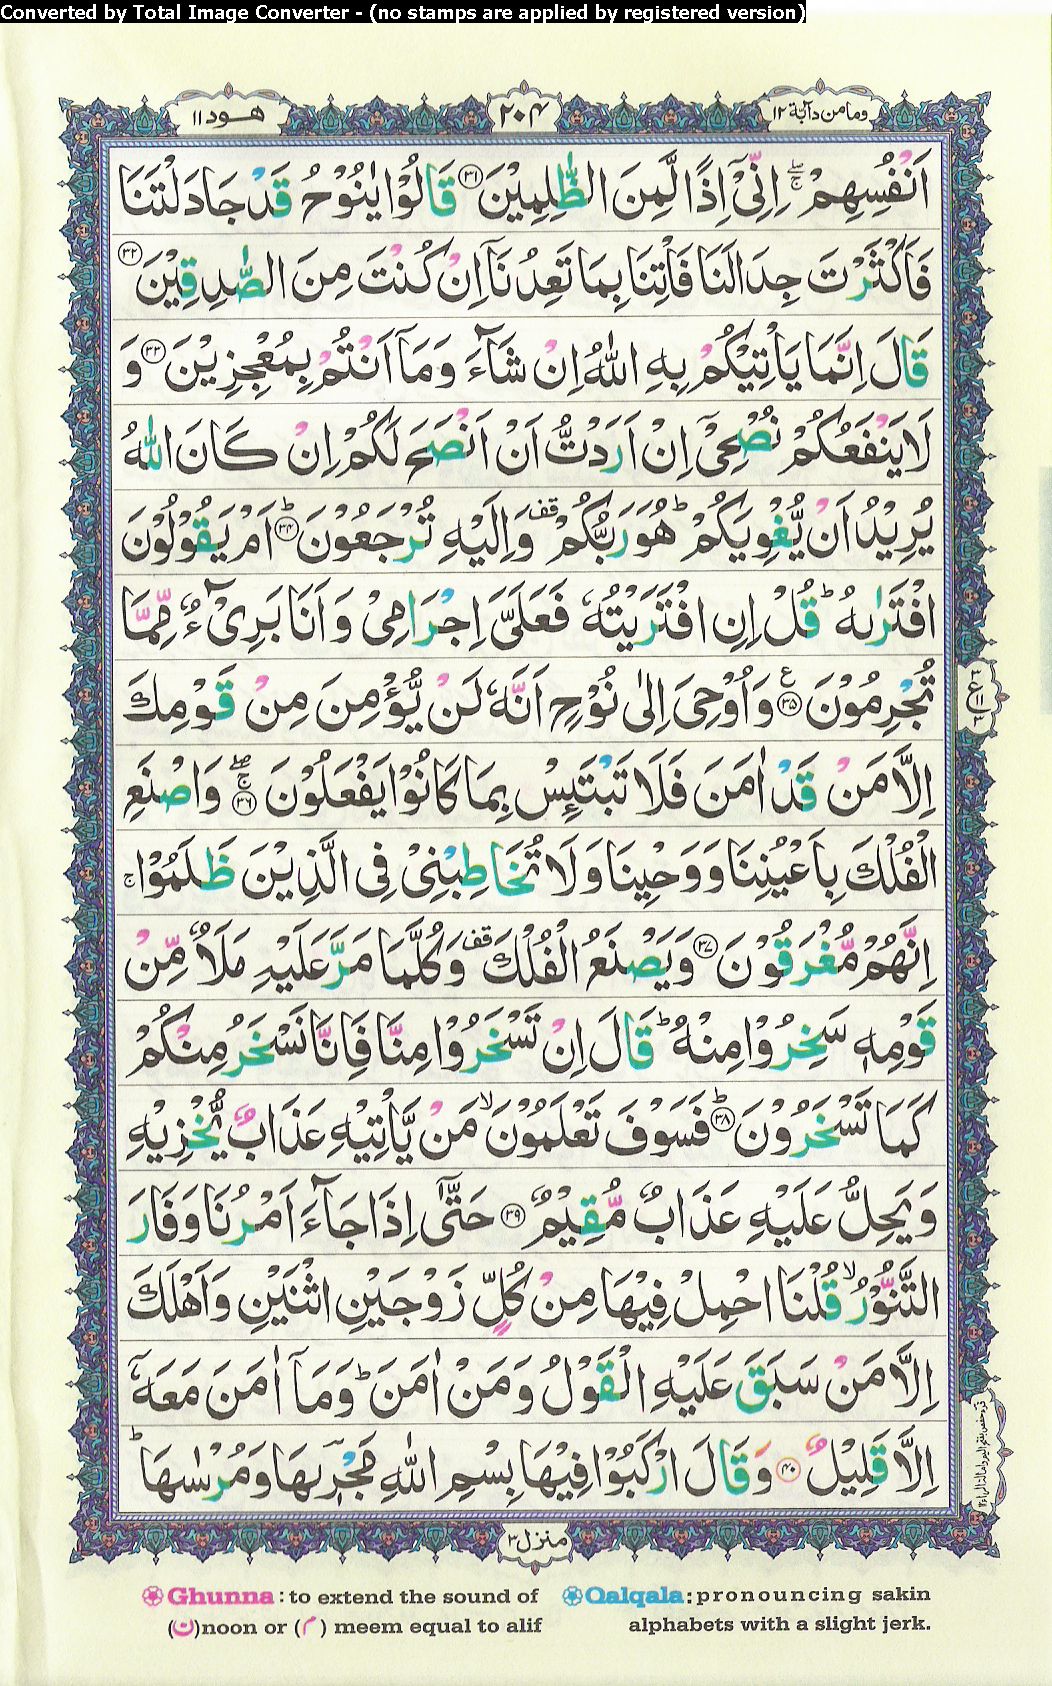 Converted by Total Image Converter - (no stamps are applied by registered version)
وما من دآبّة ١٢
٢٠٤
هود ١١
اَنْفُسِهِمْ ۖۚ اِنِّیْۤ اِذًا لَّمِنَ الظّٰلِمِیْنَ ﴿۳۱﴾ قَالُوْا یٰنُوْحُ قَدْ جَادَلْتَنَا
فَاَكْثَرْتَ جِدَالَنَا فَاْتِنَا بِمَا تَعِدُنَاۤ اِنْ كُنْتَ مِنَ الصّٰدِقِیْنَ ﴿۳۲﴾
قَالَ اِنَّمَا یَاْتِیْكُمْ بِهِ اللّٰهُ اِنْ شَآءَ وَ مَاۤ اَنْتُمْ بِمُعْجِزِیْنَ ﴿۳۳﴾ وَ
لَا یَنْفَعُكُمْ نُصْحِیْۤ اِنْ اَرَدْتُّ اَنْ اَنْصَحَ لَكُمْ اِنْ كَانَ اللّٰهُ
یُرِیْدُ اَنْ یُّغْوِیَكُمْ ؕ هُوَ رَبُّكُمْ قف وَ اِلَیْهِ تُرْجَعُوْنَ ؕ﴿۳۴﴾ اَمْ یَقُوْلُوْنَ
افْتَرٰىهُ ؕ قُلْ اِنِ افْتَرَیْتُهٗ فَعَلَیَّ اِجْرَامِیْ وَ اَنَا بَرِیْٓءٌ مِّمَّا
تُجْرِمُوْنَ ﴿۳۵﴾ ع وَ اُوْحِیَ اِلٰى نُوْحٍ اَنَّهٗ لَنْ یُّؤْمِنَ مِنْ قَوْمِكَ
٣
ع ١١
٣
اِلَّا مَنْ قَدْ اٰمَنَ فَلَا تَبْتَىِٕسْ بِمَا كَانُوْا یَفْعَلُوْنَ ۖۚ﴿۳۶﴾ وَ اصْنَعِ
الْفُلْكَ بِاَعْیُنِنَا وَ وَحْیِنَا وَ لَا تُخَاطِبْنِیْ فِی الَّذِیْنَ ظَلَمُوْا ۚ
اِنَّهُمْ مُّغْرَقُوْنَ ﴿۳۷﴾ وَ یَصْنَعُ الْفُلْكَ قف وَ كُلَّمَا مَرَّ عَلَیْهِ مَلَاٌ مِّنْ
قَوْمِهٖ سَخِرُوْا مِنْهُ ؕ قَالَ اِنْ تَسْخَرُوْا مِنَّا فَاِنَّا نَسْخَرُ مِنْكُمْ
كَمَا تَسْخَرُوْنَ ؕ﴿۳۸﴾ فَسَوْفَ تَعْلَمُوْنَ ۙ مَنْ یَّاْتِیْهِ عَذَابٌ یُّخْزِیْهِ
وَ یَحِلُّ عَلَیْهِ عَذَابٌ مُّقِیْمٌ ﴿۳۹﴾ حَتّٰۤى اِذَا جَآءَ اَمْرُنَا وَ فَارَ
التَّنُّوْرُ ۙ قُلْنَا احْمِلْ فِیْهَا مِنْ كُلٍّ زَوْجَیْنِ اثْنَیْنِ وَ اَهْلَكَ
اِلَّا مَنْ سَبَقَ عَلَیْهِ الْقَوْلُ وَ مَنْ اٰمَنَ ؕ وَ مَاۤ اٰمَنَ مَعَهٗۤ
اِلَّا قَلِیْلٌ ﴿۴۰﴾ وَ قَالَ ارْكَبُوْا فِیْهَا بِسْمِ اللّٰهِ مَجْرٖىهَا وَ مُرْسٰىهَا ؕ
منزل ٣
Ghunna : to extend the sound of
(ن)noon or (م) meem equal to alif
Qalqala: pronouncing sakin
alphabets with a slight jerk.